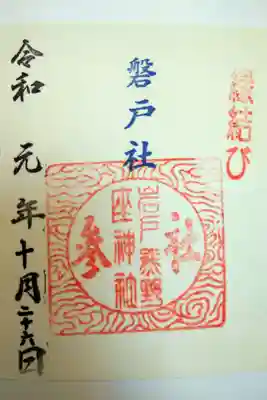 縁結び
磐戸社
参社
岩戸熊野
座神社
令和元年十月二十六日